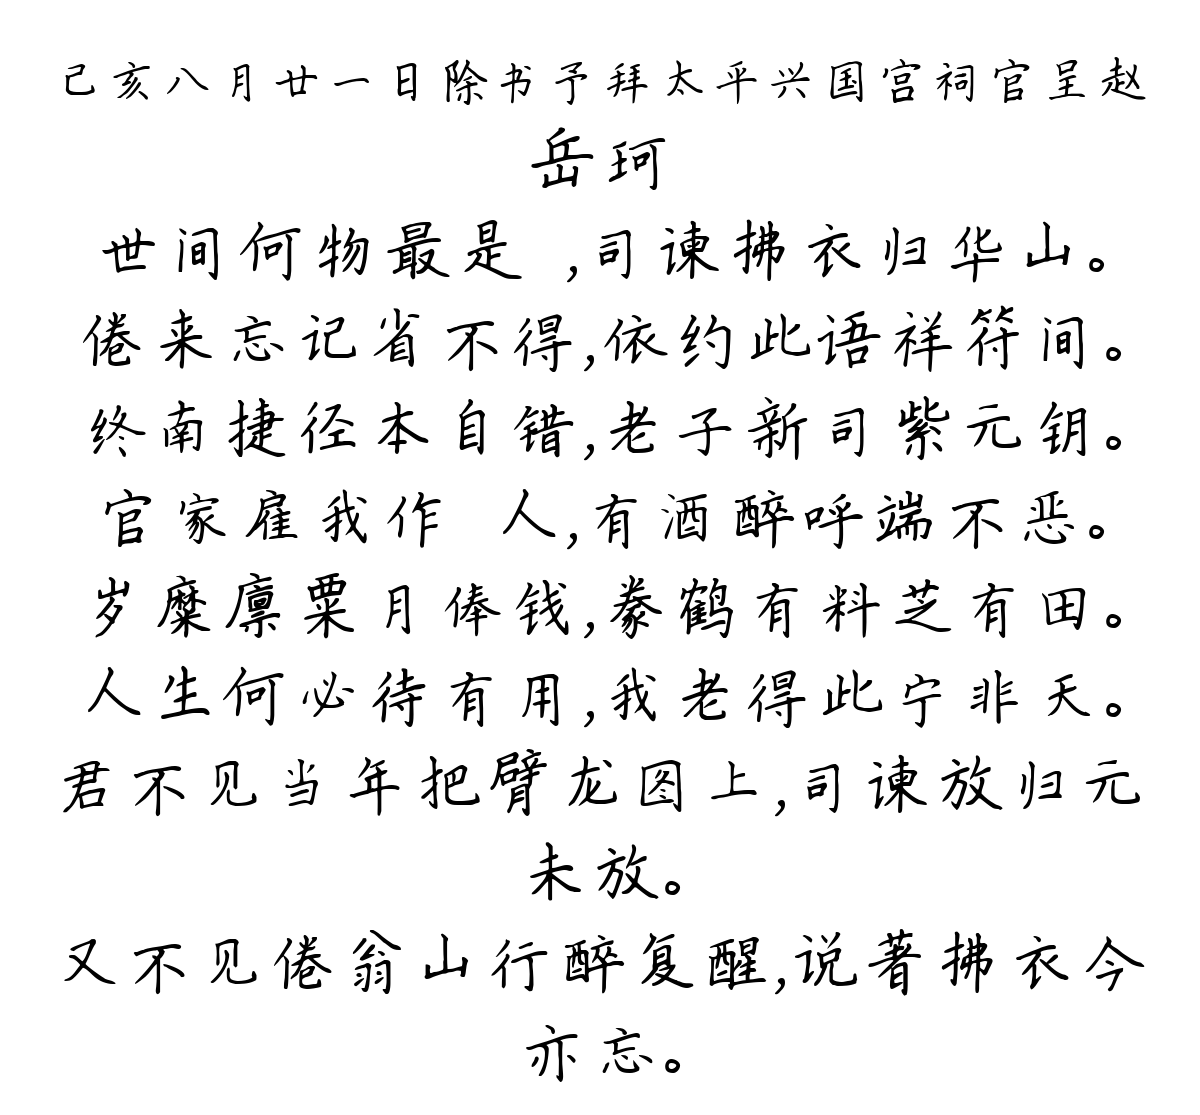 己亥八月廿一日除书予拜太平兴国宫祠官呈赵
岳珂
世间何物最是 ,司谏拂衣归华山。
倦来忘记省不得,依约此语祥符间。
终南捷径本自错,老子新司紫元钥。
官家雇我作 人,有酒醉呼端不恶。
岁糜廪粟月俸钱,豢鹤有料芝有田。
人生何必待有用,我老得此宁非天。
君不见当年把臂龙图上,司谏放归元
未放。
又不见倦翁山行醉复醒,说著拂衣今
亦忘。